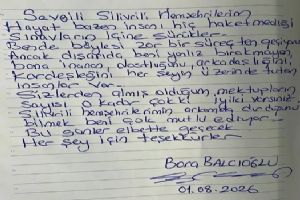 Saygılı Silivrili Hemşehrilerim
Hayat bazen insanı hiç haketmediği
sınavların içine sürükler.
Bende böylesi zor bir süreçten geçiyorum
Ancak dışarıda beni yalnız bırakmayan,
bana inanan, dostluğunu, arkadaşlığını,
Kardeşliğini her şeyin üzerinde tutan
insanlar var.
Sizlerden almış olduğum, mektupların
sayısı o kadar çok ki iyiki varsınız.
Silivrili hemşehrilerimin arkamda durduğunu
bilmek beni çok mutlu ediyor.
Bu günler elbette geçecek
Her şey için teşekkürler
Bora BALCIOĞLU
01.08.2026